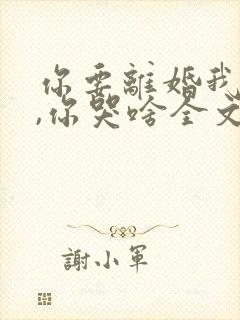 你要離婚我
,你哭啥全文
謝小軍